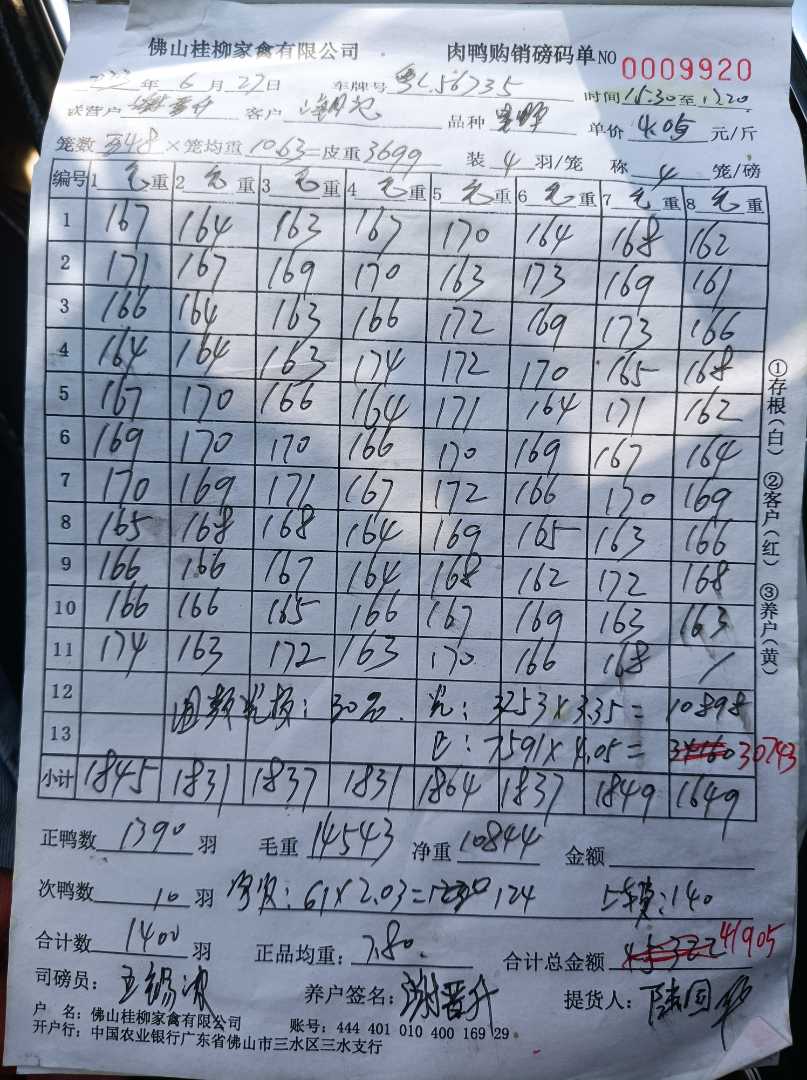 佛山桂柳家禽有限公司 肉鸭购销磅码单 NO 0009920
年 6 月 27 日 车牌号 粤L56735 时间 15:30 至
联营户 谢晋升 客户 品种 单价 4.05 元/斤
笼数 348 × 笼均重 10.63 = 皮重 3699 装 4 羽/笼 称 4 笼/磅
编号 1 毛 重 2 毛 重 3 毛 重 4 毛 重 5 毛 重 6 毛 重 7 毛 重 8 毛 重
1 167 164 163 167 170 164 168 162
2 171 167 169 170 163 173 169 161
3 166 164 163 166 172 169 173 166
4 164 164 163 174 172 170 165 168
5 167 170 166 164 171 164 171 162
6 169 170 170 166 170 169 167 164
7 170 169 171 167 172 166 170 169
8 165 168 168 164 169 165 163 166
9 166 166 167 164 168 162 172 168
10 166 166 165 166 167 169 163 163
11 174 163 172 163 170 166 168 /
12 : 30 : 3253 × 3.35 = 10898
13 : 7591 × 4.05 = 30743
小计 1845 1831 1837 1831 1864 1837 1849 1649
正鸭数 1390 羽 毛重 14543 净重 10844 金额
次鸭数 10 羽 : 61 × 2.03 = 124 上车费: 140
合计数 1400 羽 正品均重: 7.80 合计总金额 41905
司磅员: 王锡 养户签名: 谢晋升 提货人: 陆国华
户 名: 佛山桂柳家禽有限公司 账号: 444 401 010 400 169 29
开户行: 中国农业银行广东省佛山市三水区三水支行
①存根(白) ②客户(红) ③养户(黄)